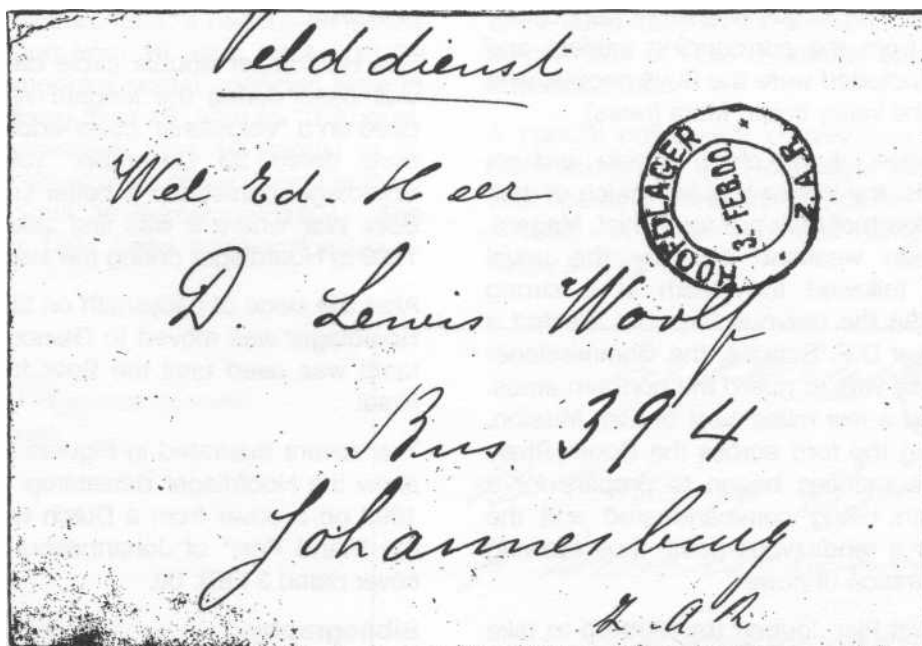 Velddienst
Wel. Ed. Heer
D. Lewis Woolf
Bus 394
Johannesburg
Z. A. R.
HOOFDLAGER
3 FEB 00
Z.A.R.